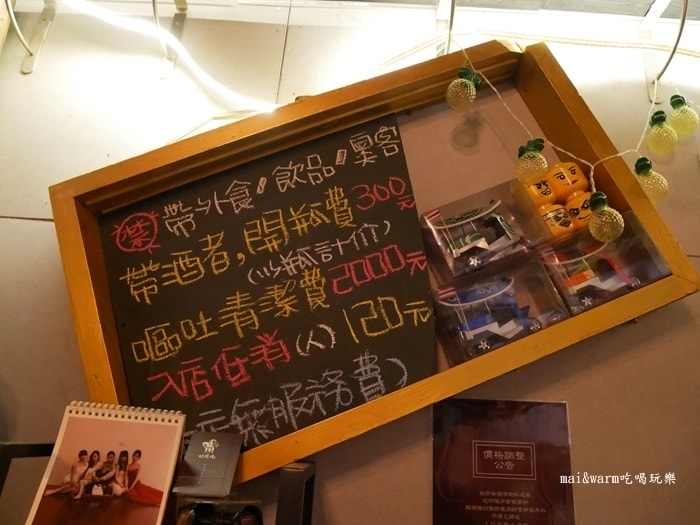 禁 帶外食/飲品/奧客
帶酒者,開瓶費300元
(以瓶計价)
嘔吐清潔費2000元
入店低消(人)120元
無服務費)
價格調整
公告
mai&warm吃喝玩樂